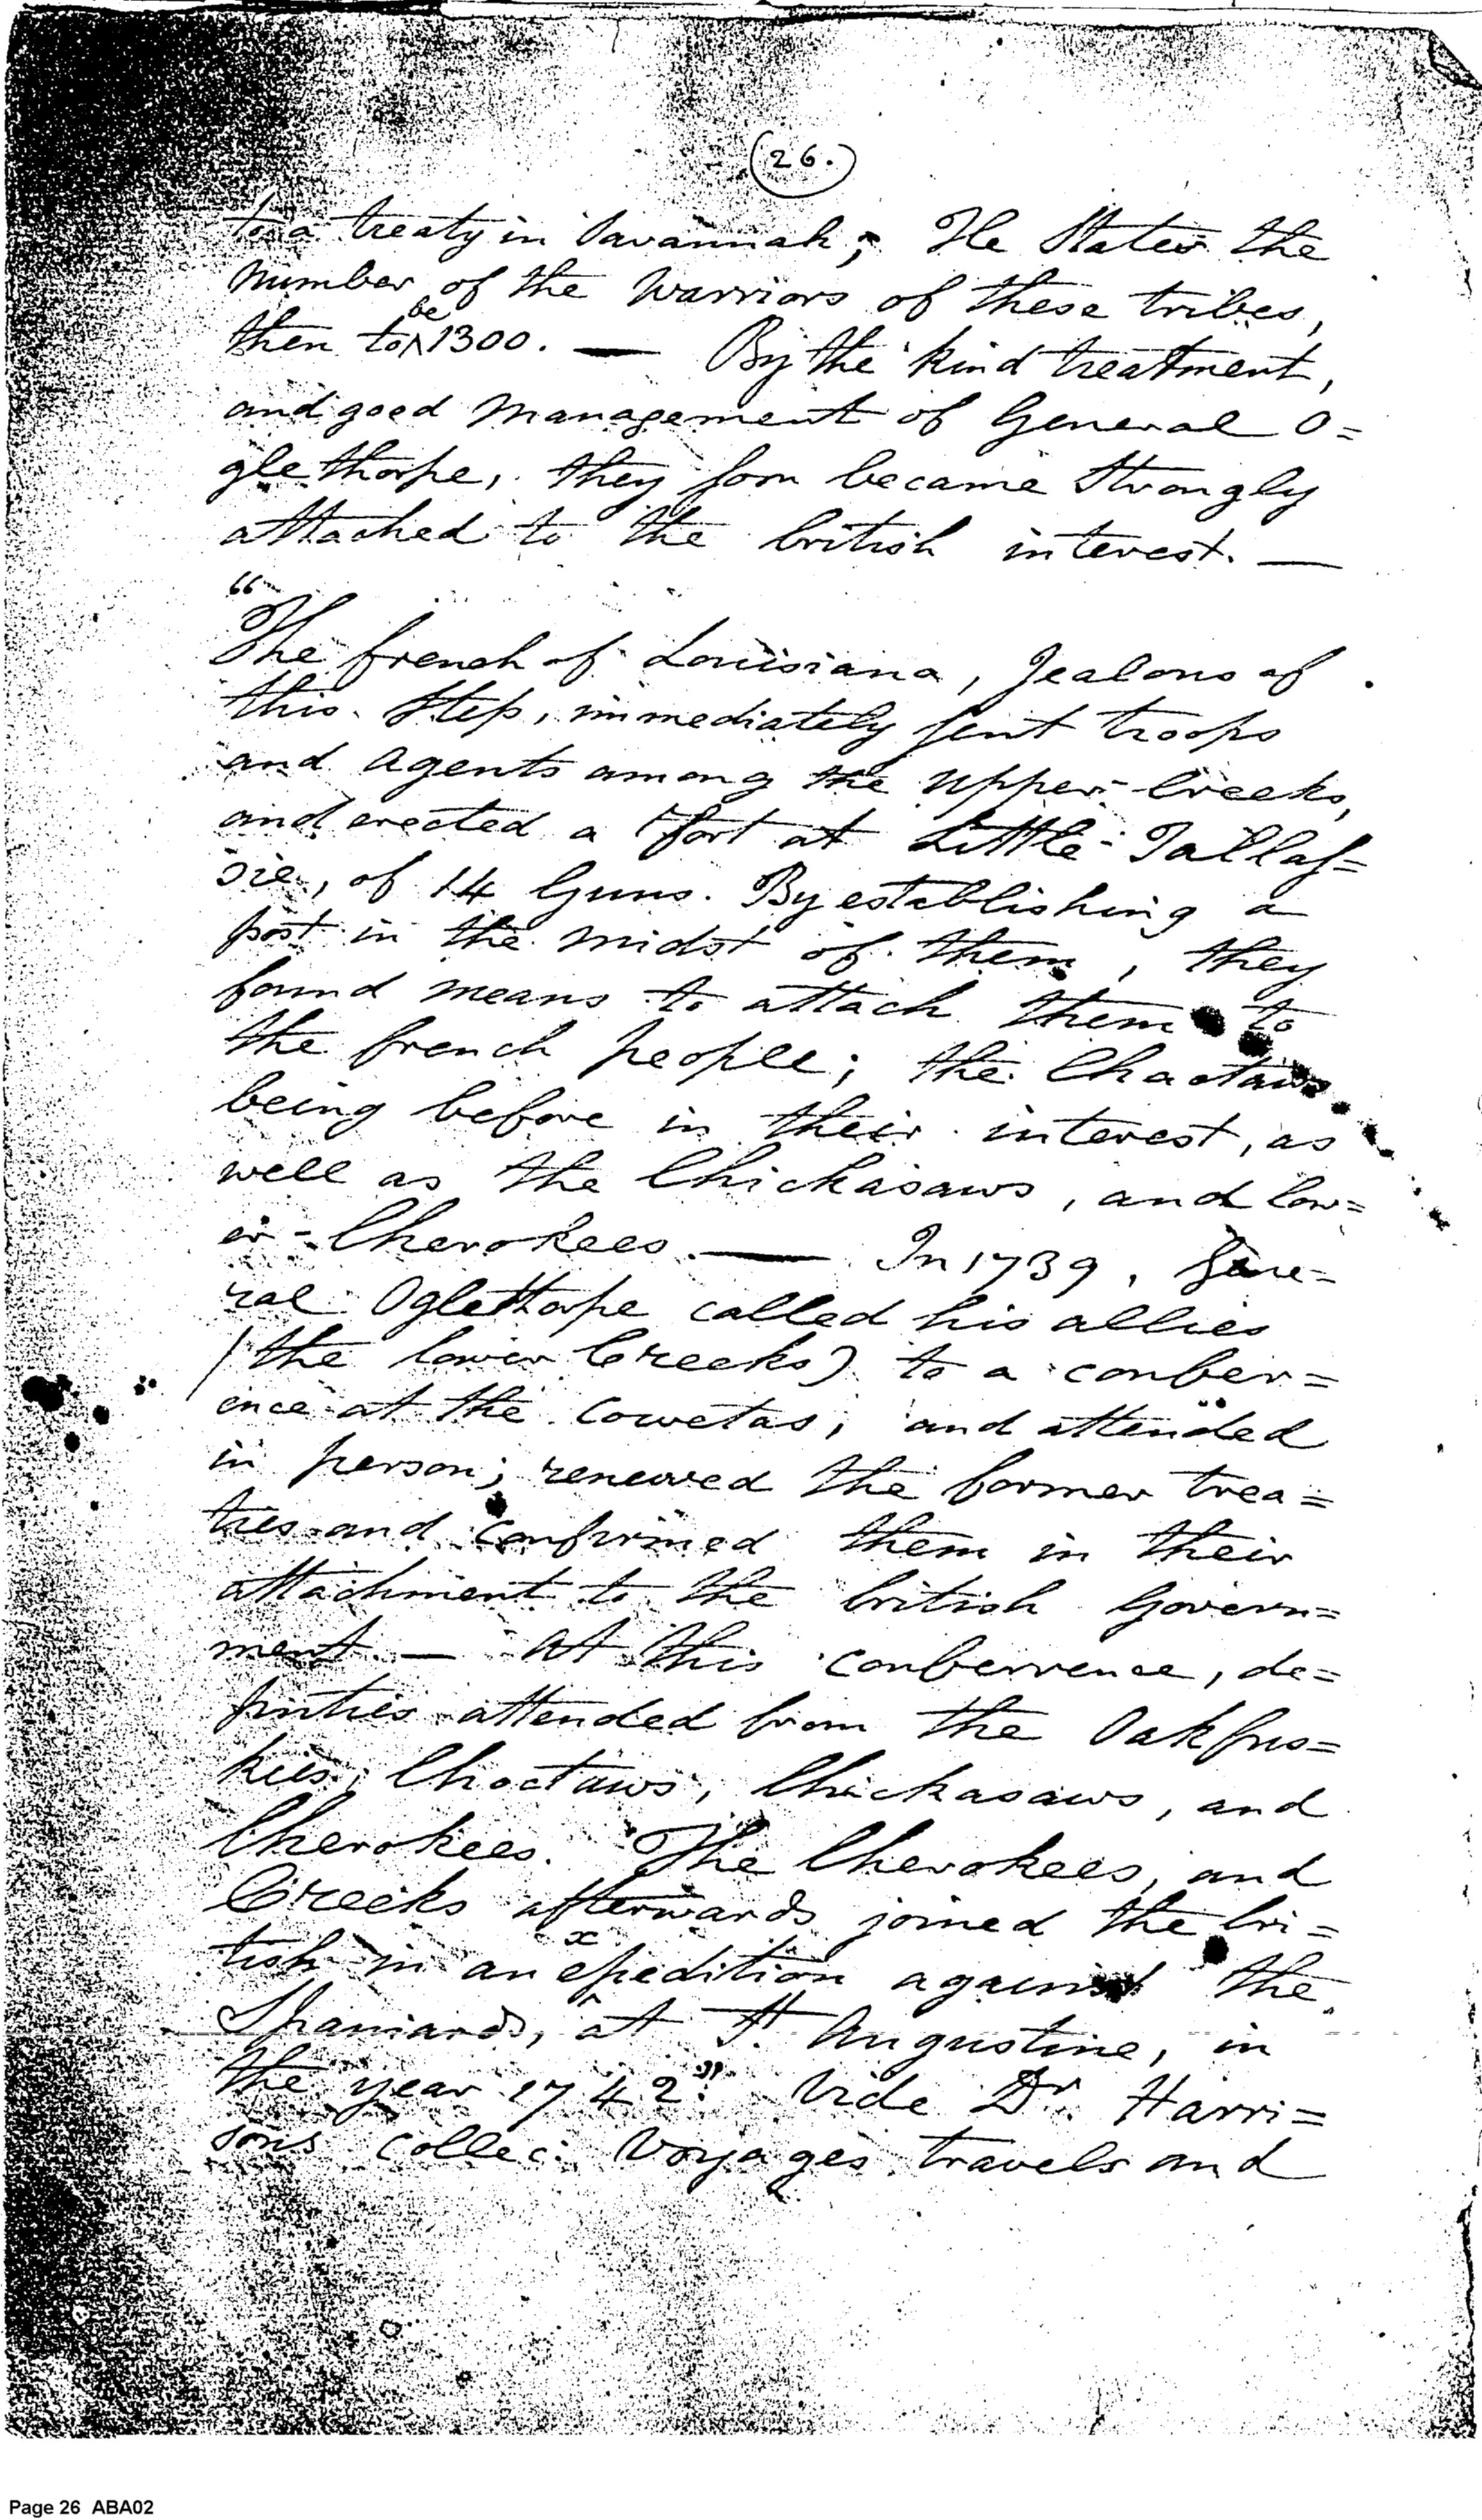 (26.)
to a treaty in Savannah; He States the
number of the Warriors of these tribes,
be
then to^1300. — By the kind treatment,
and good management of General O=
glethorpe, they soon became Strongly
attached to the british interest. —
"
The french of Louisiana, Jealous of
this Step, immediately sent troops
and agents among the Upper-Creeks,
and erected a fort at Little-Tallas=
sie, of 14 Guns. By establishing a
post in the midst of them, they
found means to attach them to
the french people; the Chactaws
being before in their interest, as
well as the Chickasaws, and low=
er-Cherokees. — In 1739, Gene=
ral Oglethorpe called his allies
(the lower Creeks) to a confer=
ence at the Cowetas; and attended
in person; renewed the former trea=
ties and confirmed them in their
attachment to the british Govern=
ment. — At this conferrence, de=
puties attended from the Oakfus=
kies, Choctaws, Chickasaws, and
Cherokees. The Cherokees, and
Creeks afterwards joined the bri=
x
tish in an e^pedition against the
Spaniards, at St. Augustine, in
the year 1742." Vide Dr. Harri=
sons collec: Voyages, travels and
Page 26 ABA02